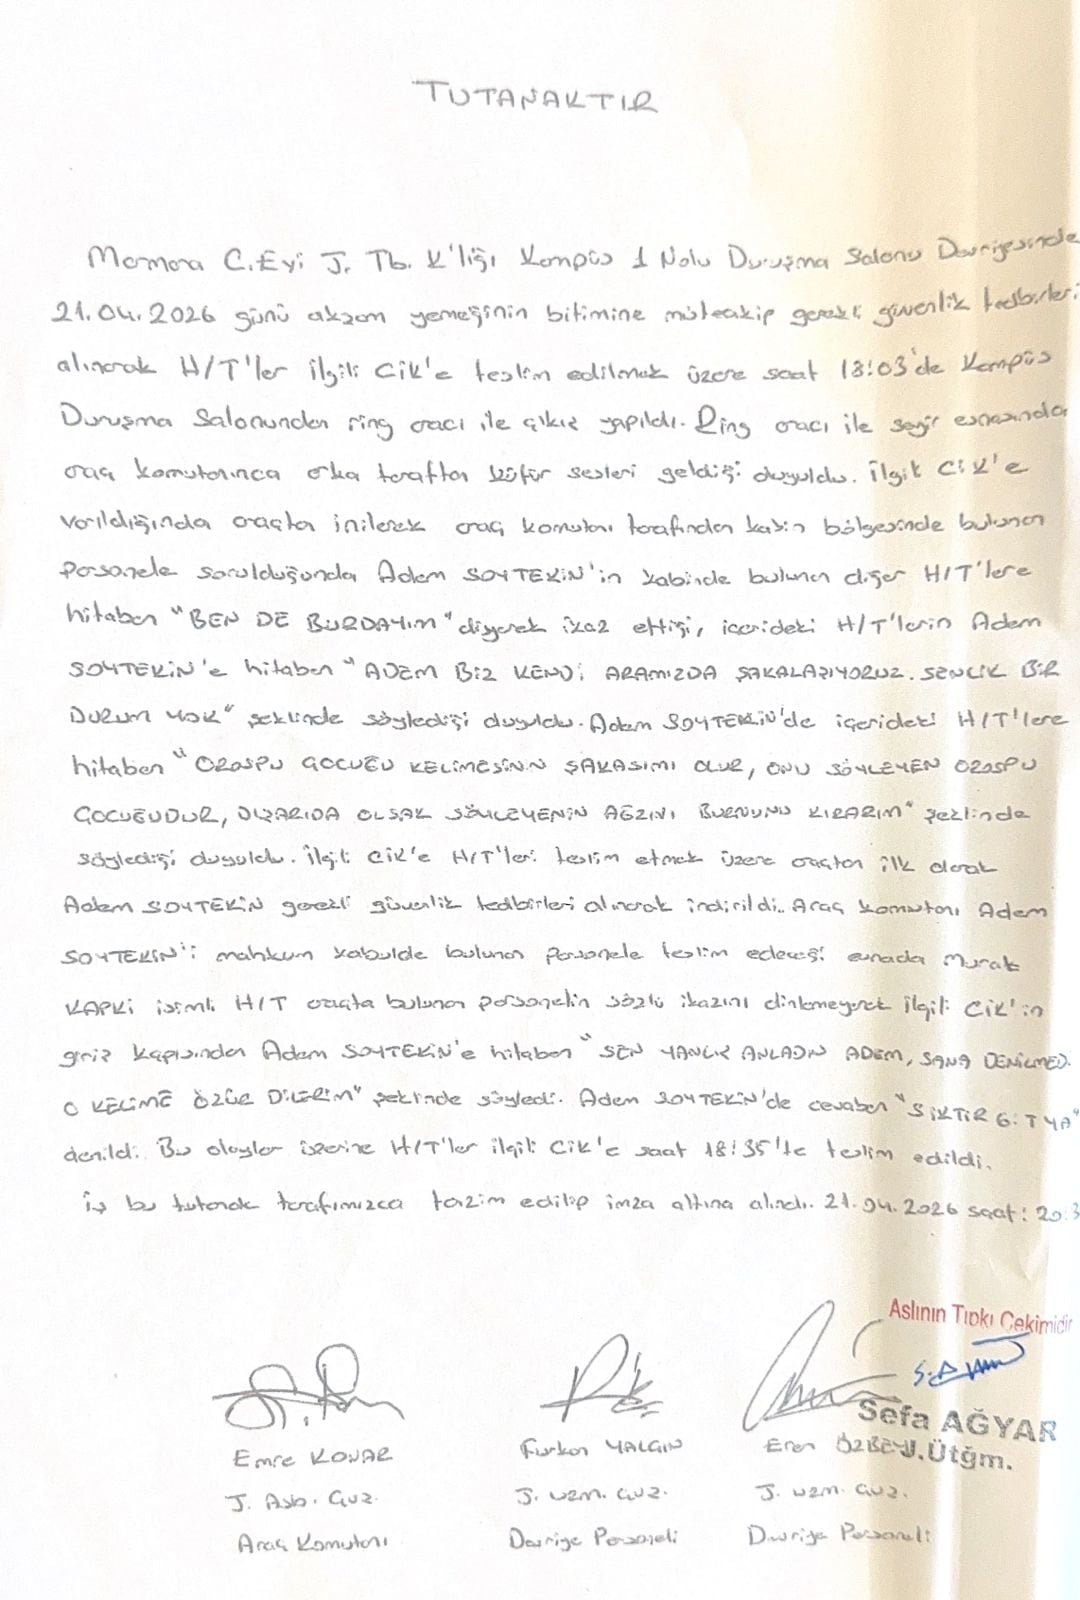 TUTANAKTIR
Marmara C.Evi J. Tb. K'lığı Kampüs 1 Nolu Duruşma Salonu Devriyesinde
21.04.2026 günü akşam yemeğinin bitimine müteakip gerekli güvenlik tedbirleri
alınarak H/T'ler ilgili CİK'e teslim edilmek üzere saat 18:03'de Kampüs
Duruşma Salonundan ring aracı ile çıkış yapıldı. Ring aracı ile seyir esnasında
araç komutanınca arka taraftan küfür sesleri geldiği duyuldu. İlgili CİK'e
varıldığında araçtan inilerek araç komutanı tarafından kabin bölgesinde bulunan
personele sorulduğunda Adem SOYTEKİN'in kabinde bulunan diğer H/T'lere
hitaben "BEN DE BURDAYIM" diyerek ikaz ettiği, içerideki H/T'lerin Adem
SOYTEKİN'e hitaben "ADEM BİZ KENDİ ARAMIZDA ŞAKALAŞIYORUZ. SENLİK BİR
DURUM YOK" şeklinde söylediği duyuldu. Adem SOYTEKİN'de içerideki H/T'lere
hitaben "OROSPU ÇOCUĞU KELİMESİNİN ŞAKASIMI OLUR, ONU SÖYLEYEN OROSPU
ÇOCUĞUDUR, DIŞARIDA OLSAK SÖYLEYENİN AĞZINI BURNUNU KIRARIM" şeklinde
söylediği duyuldu. İlgili CİK'e H/T'leri teslim etmek üzere araçtan ilk olarak
Adem SOYTEKİN gerekli güvenlik tedbirleri alınarak indirildi. Araç komutanı Adem
SOYTEKİN'i mahkum kabulde bulunan personele teslim edeceği esnada Murat
KAPKİ isimli H/T araçta bulunan personelin sözlü ikazını dinlemeyerek ilgili CİK'in
giriş kapısından Adem SOYTEKİN'e hitaben "SEN YANLIŞ ANLADIN ADEM, SANA DENİLMEDİ
O KELİME ÖZÜR DİLERİM" şeklinde söyledi. Adem SOYTEKİN'de cevaben "SİKTİR GİT YA"
denildi. Bu olaylar üzerine H/T'ler ilgili CİK'e saat 18:35'te teslim edildi.
İş bu tutanak tarafımızca tanzim edilip imza altına alındı. 21.04.2026 saat: 20:3
Aslının Tıpkı Çekimidir
Sefa AĞYAR
J.Ütğm.
Emre KONAR
Furkan YALÇIN
Eren ÖZBEY
J. Asb. Çvş.
J. Uzm. Çvş.
J. Uzm. Çvş.
Araç Komutanı
Devriye Personeli
Devriye Personeli